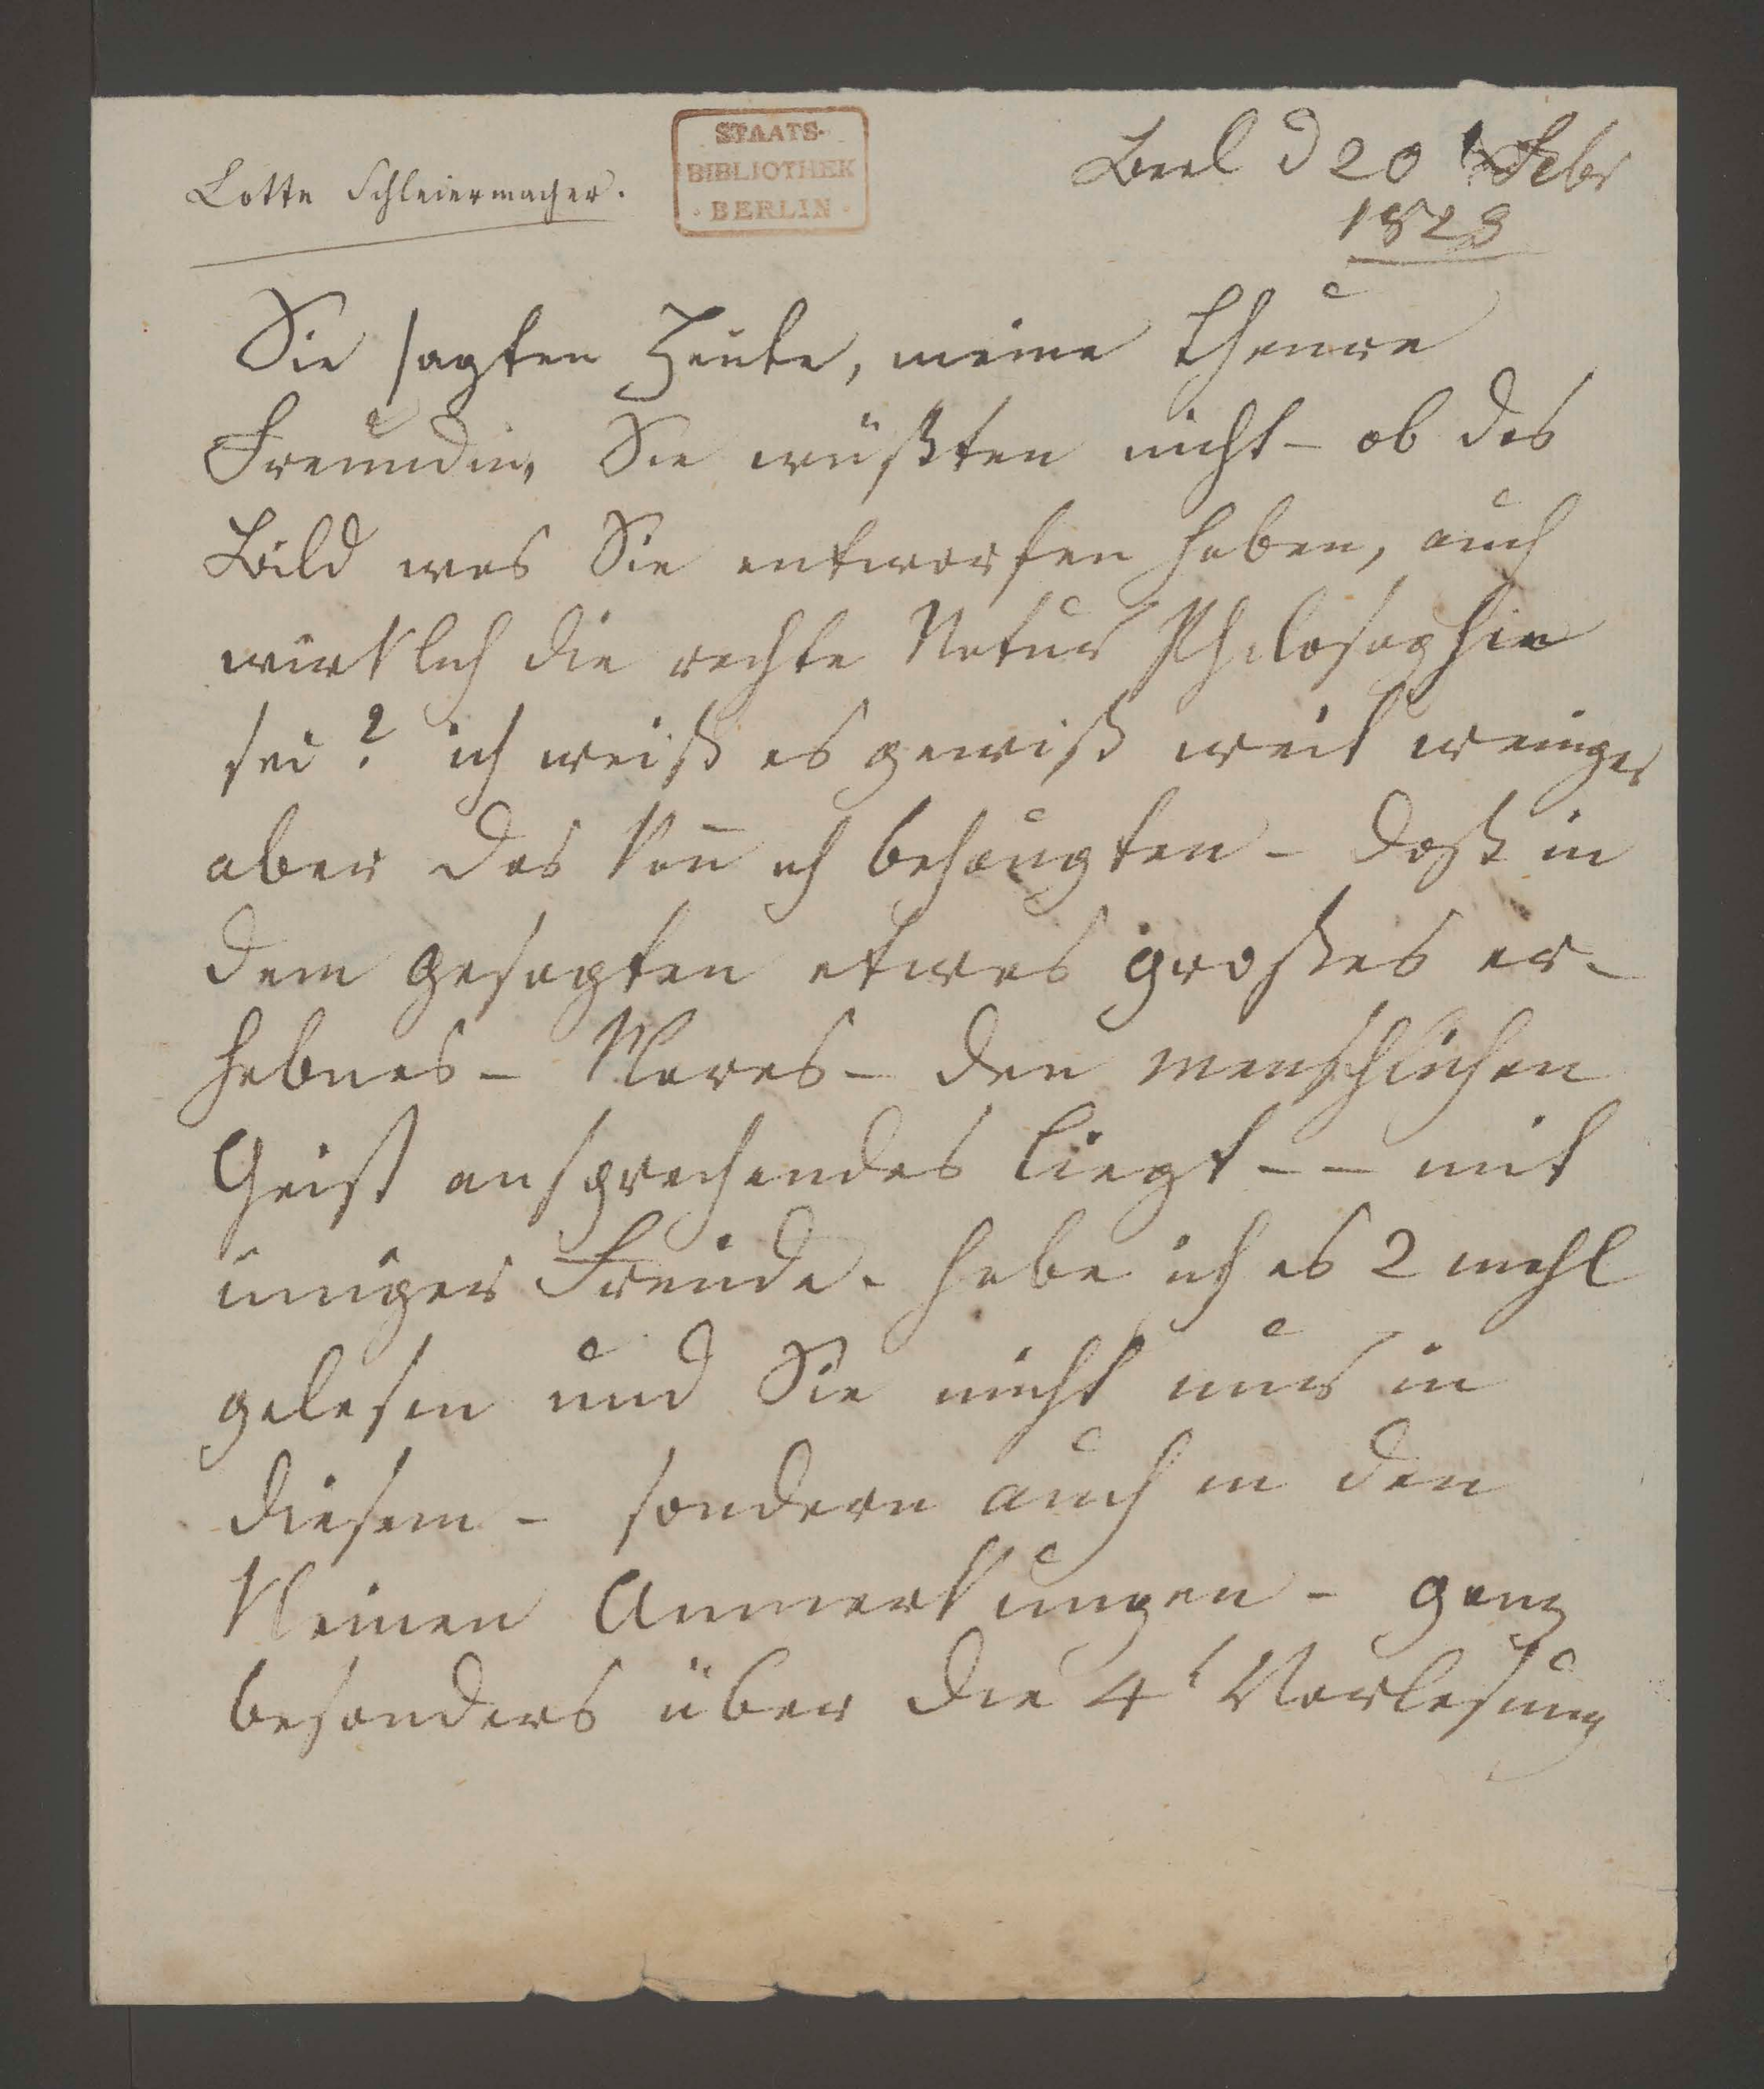 Lotte Schleiermacher.
STAATS-
BIBLIOTHEK
· BERLIN ·
Berl d 20 Febr
1823
Sie sagten Heute, meine theure
Freundin, Sie wüßten nicht – ob das
Bild was Sie entworfen haben, auch
wirklich die rechte Natur Philosophie
sei? ich weiß es gewiß weit weniger
aber das kan̄ ich behaupten – daß in
dem gesagten etwas großes er-
habnes – Klares – den menschlichen
Geist ansprechendes liegt – – mit
inniger Freude – habe ich es 2 mahl
gelesen und Sie nicht nur in
diesem – sondern auch in den
kleinen Anmerkungen – ganz
besonders über die 4t Vorlesung